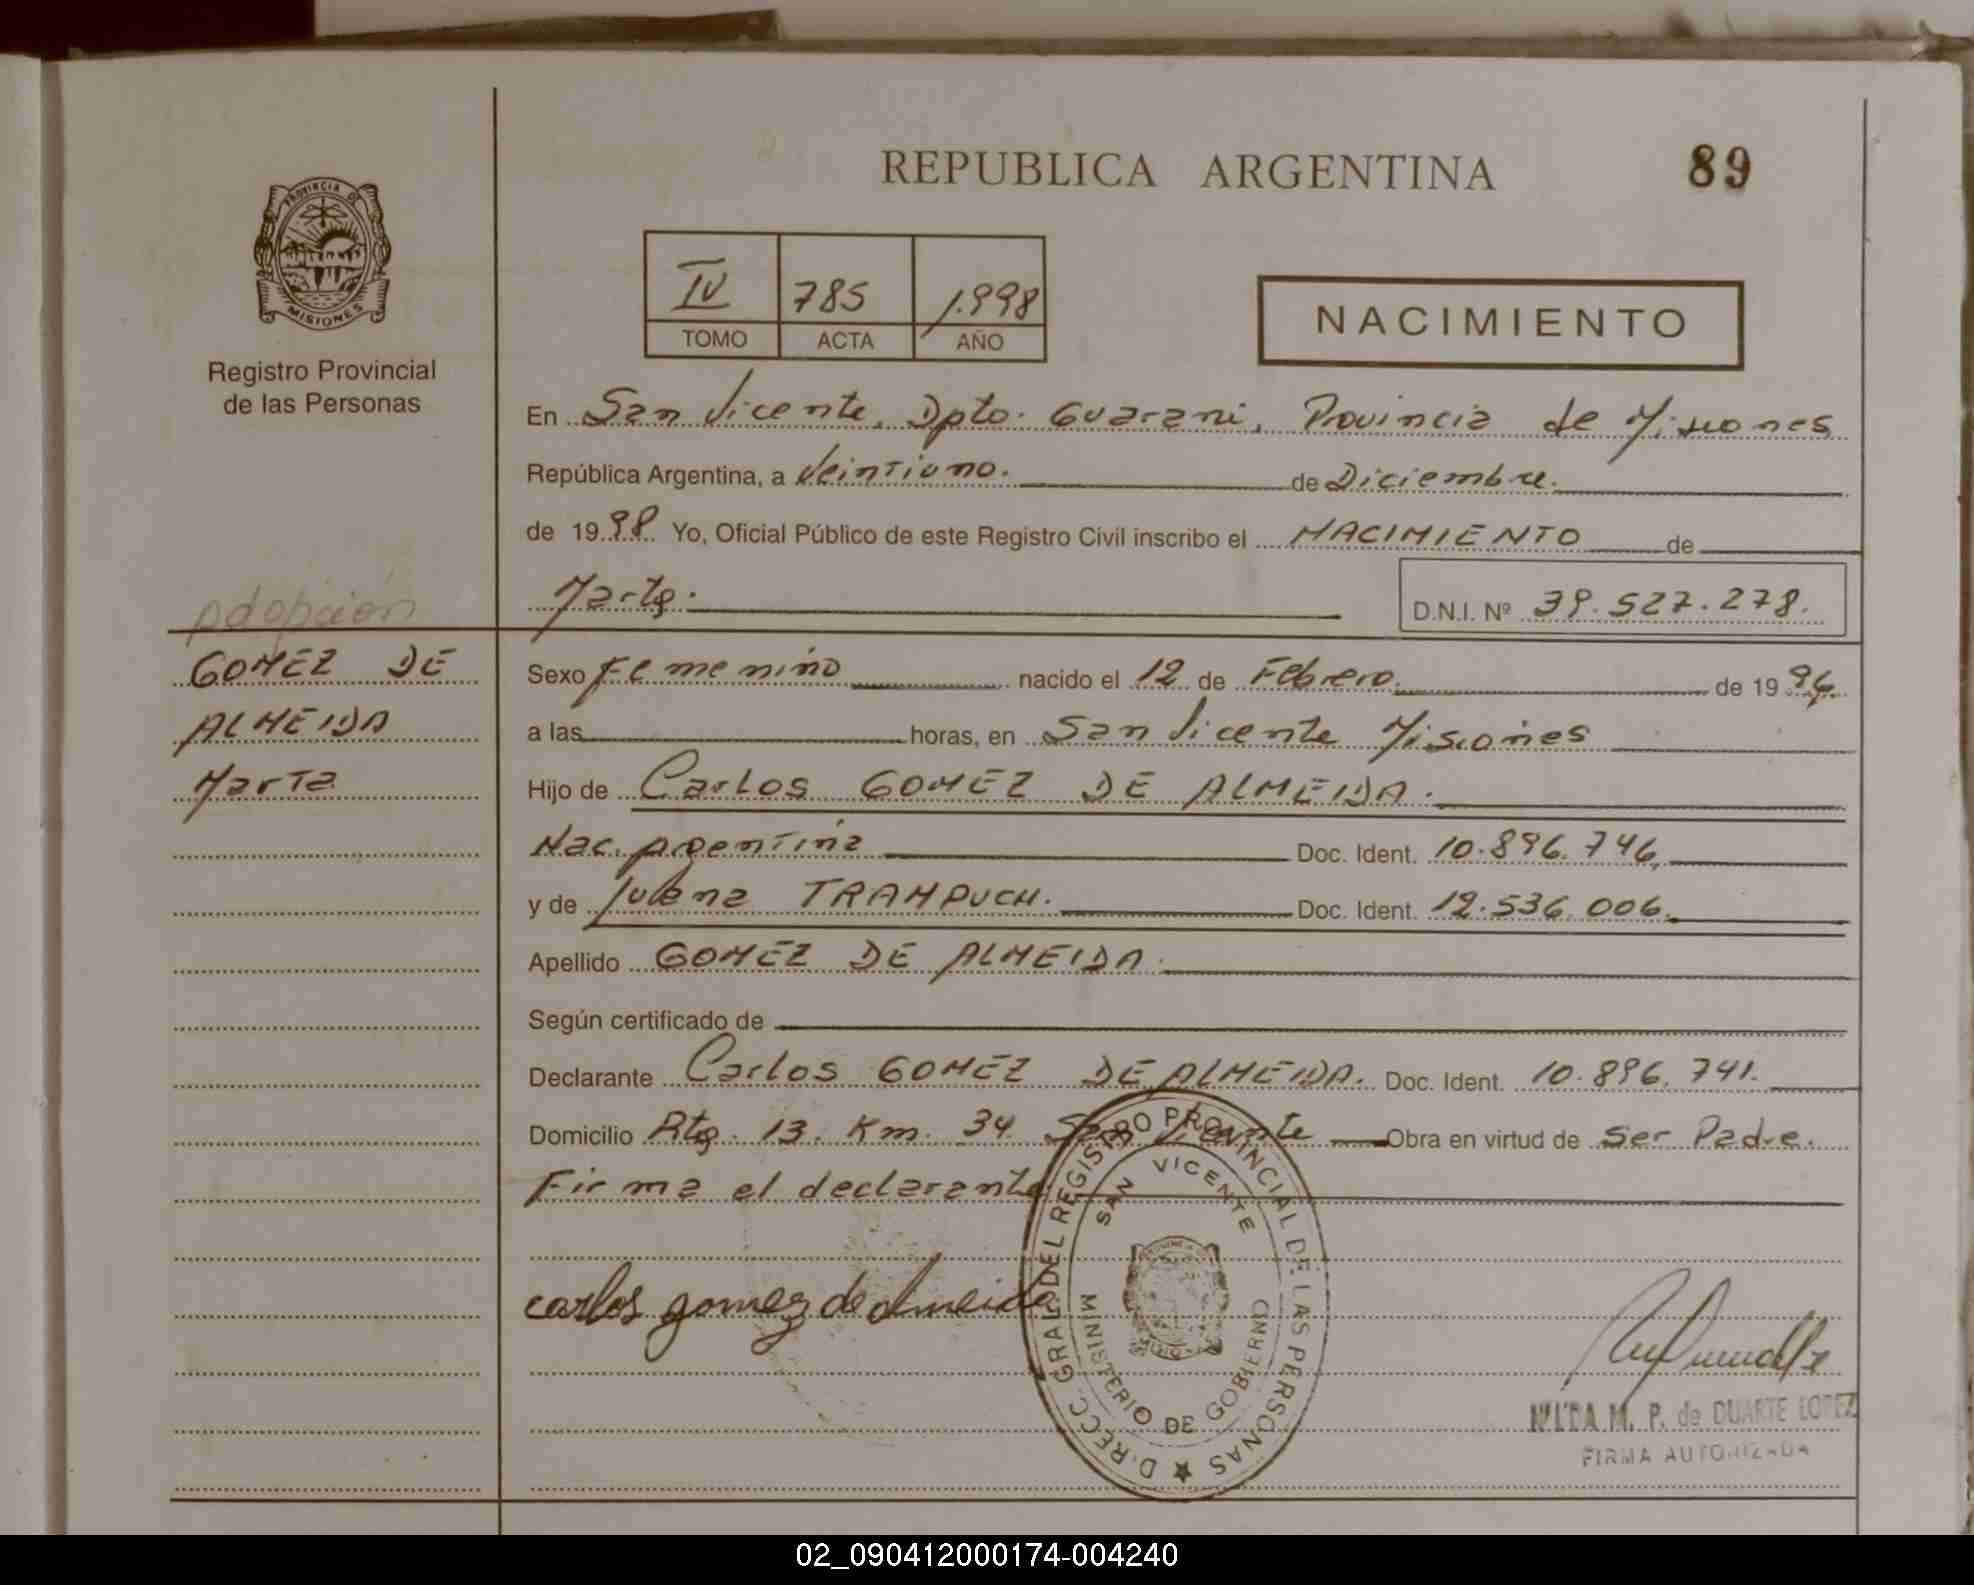 REPUBLICA ARGENTINA
89
PROVINCIA DE
MISIONES
Registro Provincial
de las Personas
IV 785 1.998
TOMO ACTA AÑO
NACIMIENTO
En San Vicente, Dpto. Guarani, Provincia de Misiones
República Argentina, a Veintiuno. de Diciembre.
de 1998 Yo, Oficial Público de este Registro Civil inscribo el NACIMIENTO de
Marta.
D.N.I. Nº 39.527.278.
adopcion
GOMEZ DE
ALMEIDA
Marta
Sexo Femenino nacido el 12 de Febrero. de 1996
a las horas, en San Vicente Misiones
Hijo de Carlos GOMEZ DE ALMEIDA.
Nac. Argentina Doc. Ident. 10.896.746,
y de TRAMPUCH. Doc. Ident. 12.536.006.
Apellido GOMEZ DE ALMEIDA.
Según certificado de
Declarante Carlos GOMEZ DE ALMEIDA. Doc. Ident. 10.896.741.
Domicilio Rta. 13. Km. 34 San Vicente Obra en virtud de Ser Padre.
Firma el declarante
carlos gomez de almeida
DIRECC. GRAL. DEL REGISTRO PROVINCIAL DE LAS PERSONAS
SAN VICENTE
MINISTERIO DE GOBIERNO
M. P. de DUARTE LOPEZ
FIRMA AUTORIZADA
02_090412000174-004240